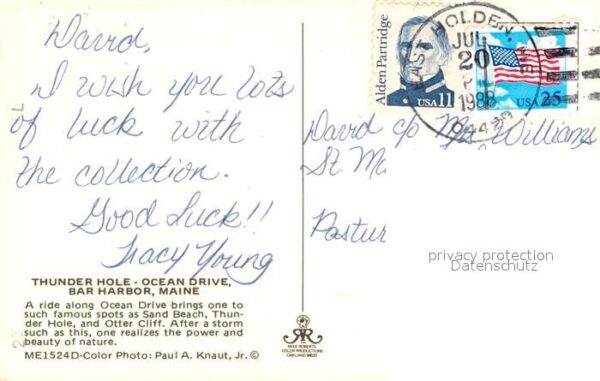 David,
I wish you lots
of luck with
the collection.
Good Luck!!
Tracy Young
THUNDER HOLE - OCEAN DRIVE,
BAR HARBOR, MAINE
A ride along Ocean Drive brings one to
such famous spots as Sand Beach, Thun-
der Hole, and Otter Cliff. After a storm
such as this, one realizes the power and
beauty of nature.
ME1524D-Color Photo: Paul A. Knaut, Jr. ©
Alden Partridge
USA 11
USA 25
EAST HOLDEN, ME
JUL
20
1988
David c/o Mrs Williams
St. Ma
Pastur
privacy protection
Datenschutz
MIKE ROBERTS
COLOR PRODUCTIONS
OAKLAND 94623